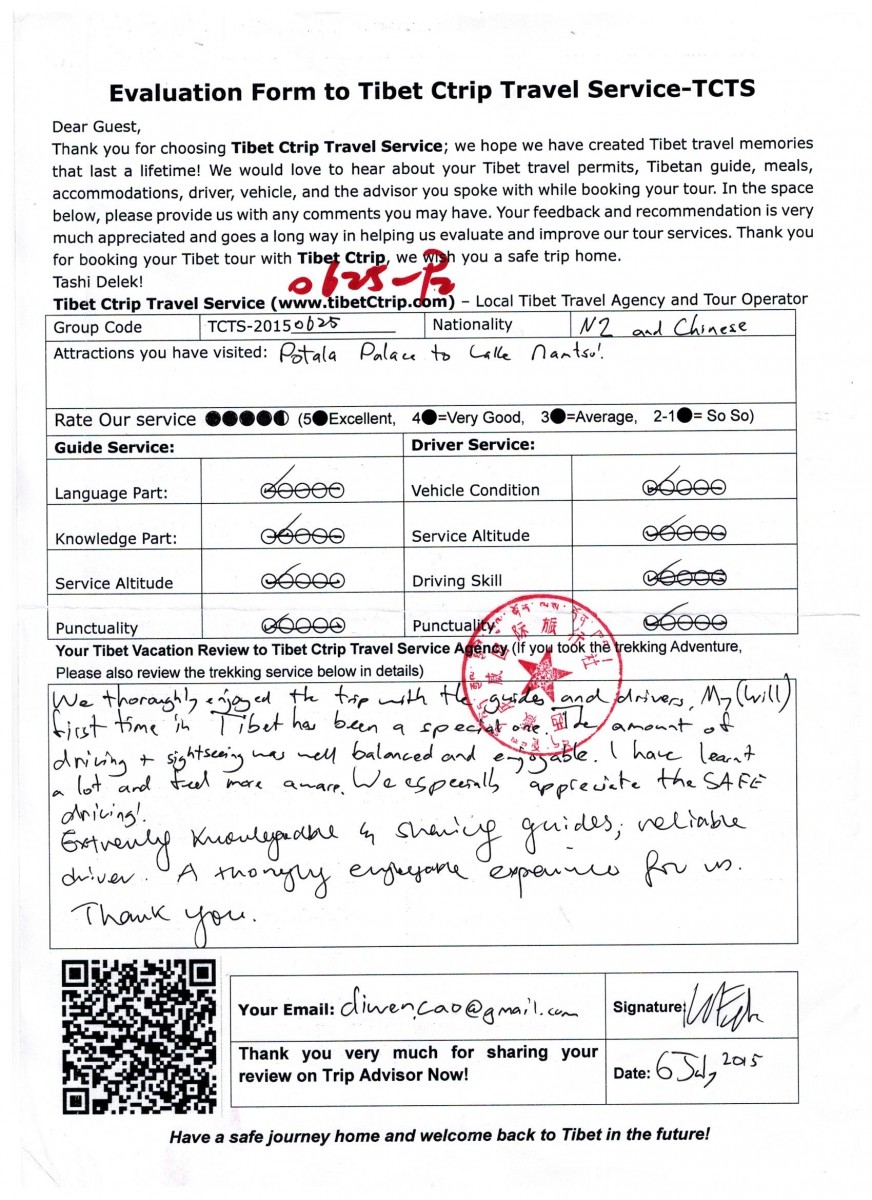 Evaluation Form to Tibet Ctrip Travel Service-TCTS
Dear Guest,
Thank you for choosing Tibet Ctrip Travel Service; we hope we have created Tibet travel memories
that last a lifetime! We would love to hear about your Tibet travel permits, Tibetan guide, meals,
accommodations, driver, vehicle, and the advisor you spoke with while booking your tour. In the space
below, please provide us with any comments you may have. Your feedback and recommendation is very
much appreciated and goes a long way in helping us evaluate and improve our tour services. Thank you
for booking your Tibet tour with Tibet Ctrip, we wish you a safe trip home.
Tashi Delek!
0625-P2
Tibet Ctrip Travel Service (www.tibetCtrip.com) – Local Tibet Travel Agency and Tour Operator
Group Code TCTS-20150625 Nationality NZ and Chinese
Attractions you have visited: Potala Palace to Lake Namtso!
Rate Our service ●●●●◐ (5●Excellent, 4●=Very Good, 3●=Average, 2-1●= So So)
Guide Service: Driver Service:
Language Part: Vehicle Condition
Knowledge Part: Service Altitude
Service Altitude Driving Skill
Punctuality Punctuality
Your Tibet Vacation Review to Tibet Ctrip Travel Service Agency (If you took the trekking Adventure,
Please also review the trekking service below in details)
We thoroughly enjoyed the trip with the guides and drivers. My (Will)
first time in Tibet has been a special one. The amount of
driving + sightseeing was well balanced and enjoyable. I have learnt
a lot and feel more aware. We especially appreciate the SAFE
driving!
Extremly knowlegeable & sharing guides; reliable
driver. A thorougly enjoyable experience for us.
Thank you.
Your Email: diwen.cao@gmail.com Signature:
Thank you very much for sharing your
review on Trip Advisor Now!
Date: 6 July 2015
Have a safe journey home and welcome back to Tibet in the future!